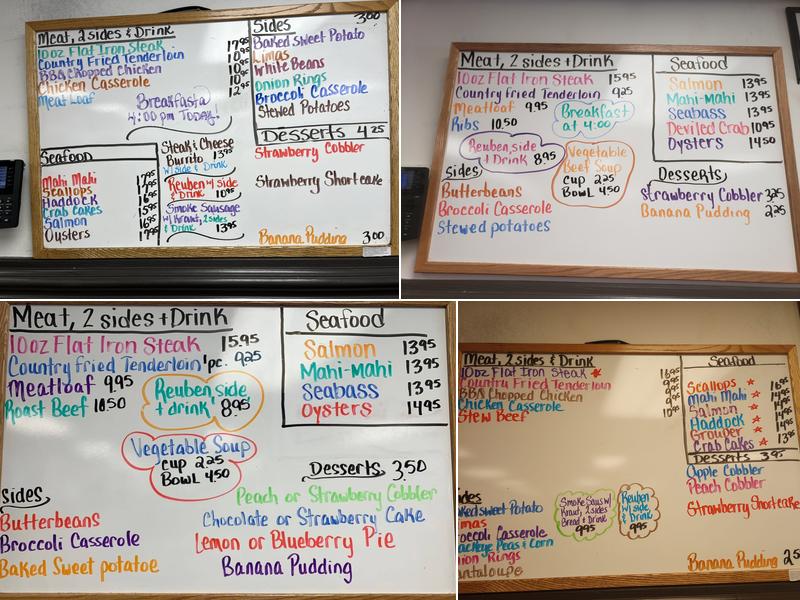 Meat, 2 sides & Drink
10oz Flat Iron Steak 17.95
Country Fried Tenderloin
BBQ Chopped Chicken
Chicken Casserole
Meat Loaf
Breakfast a
4:00 pm TODAY!
Sides 3.00
Baked Sweet Potato
Limas
White Beans
Onion Rings
Broccoli Casserole
Stewed Potatoes
Desserts 4.25
Strawberry Cobbler
Strawberry Shortcake
Banana Pudding 3.00
Seafood
Mahi Mahi
Scallops
Haddock
Crab Cakes
Salmon
Oysters
Steak & Cheese
Burrito 13.95
w/ side & Drink
Reuben w/ side
& Drink 10.95
Smoke Sausage
w/ Kraut, 2 sides
& Drink 13.95
Meat, 2 sides + Drink
10oz Flat Iron Steak 15.95
Country fried Tenderloin 9.25
Meatloaf 9.95
Ribs 10.50
Breakfast
at 4:00
Reuben, side
+ Drink 8.95
Vegetable
Beef Soup
Cup 2.25
Bowl 4.50
Sides
Butterbeans
Broccoli Casserole
Stewed potatoes
Seafood
Salmon 13.95
Mahi-Mahi 13.95
Seabass 13.95
Deviled Crab 10.95
Oysters 14.50
Desserts
Strawberry Cobbler 3.25
Banana Pudding 2.25
Meat, 2 sides + Drink
10oz Flat Iron Steak 15.95
Country fried Tenderloin 1pc. 9.25
Meatloaf 9.95
Roast Beef 10.50
Reuben, side
+ drink 8.95
Vegetable Soup
Cup 2.25
Bowl 4.50
Sides
Butterbeans
Broccoli Casserole
Baked Sweet potatoe
Seafood
Salmon 13.95
Mahi-Mahi 13.95
Seabass 13.95
Oysters 14.95
Desserts 3.50
Peach or Strawberry Cobbler
Chocolate or Strawberry Cake
Lemon or Blueberry Pie
Banana Pudding
Meat, 2 sides & Drink
10oz Flat Iron Steak 16.95
Country Fried Tenderloin
BBQ Chopped Chicken
Chicken Casserole
Stew Beef
ides
aked Sweet Potato
imas
roccoli Casserole
lackeye Peas & Corn
nion Rings
antaloupe
Smoke Saus w/
Kraut, 2 sides
Bread & Drink
9.95
Reuben
w/ side
& Drink
9.95
Seafood
Scallops 16.95
Mahi Mahi 14.95
Salmon 14.95
Haddock 14.95
Grouper 14.95
Crab Cakes 13.95
Desserts 3.95
Apple Cobbler
Peach Cobbler
Strawberry Shortcake
Banana Pudding 2.5